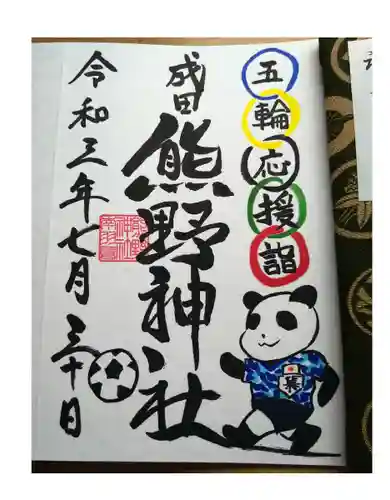 五輪応援詣
成田
熊野神社
令和三年七月三十日